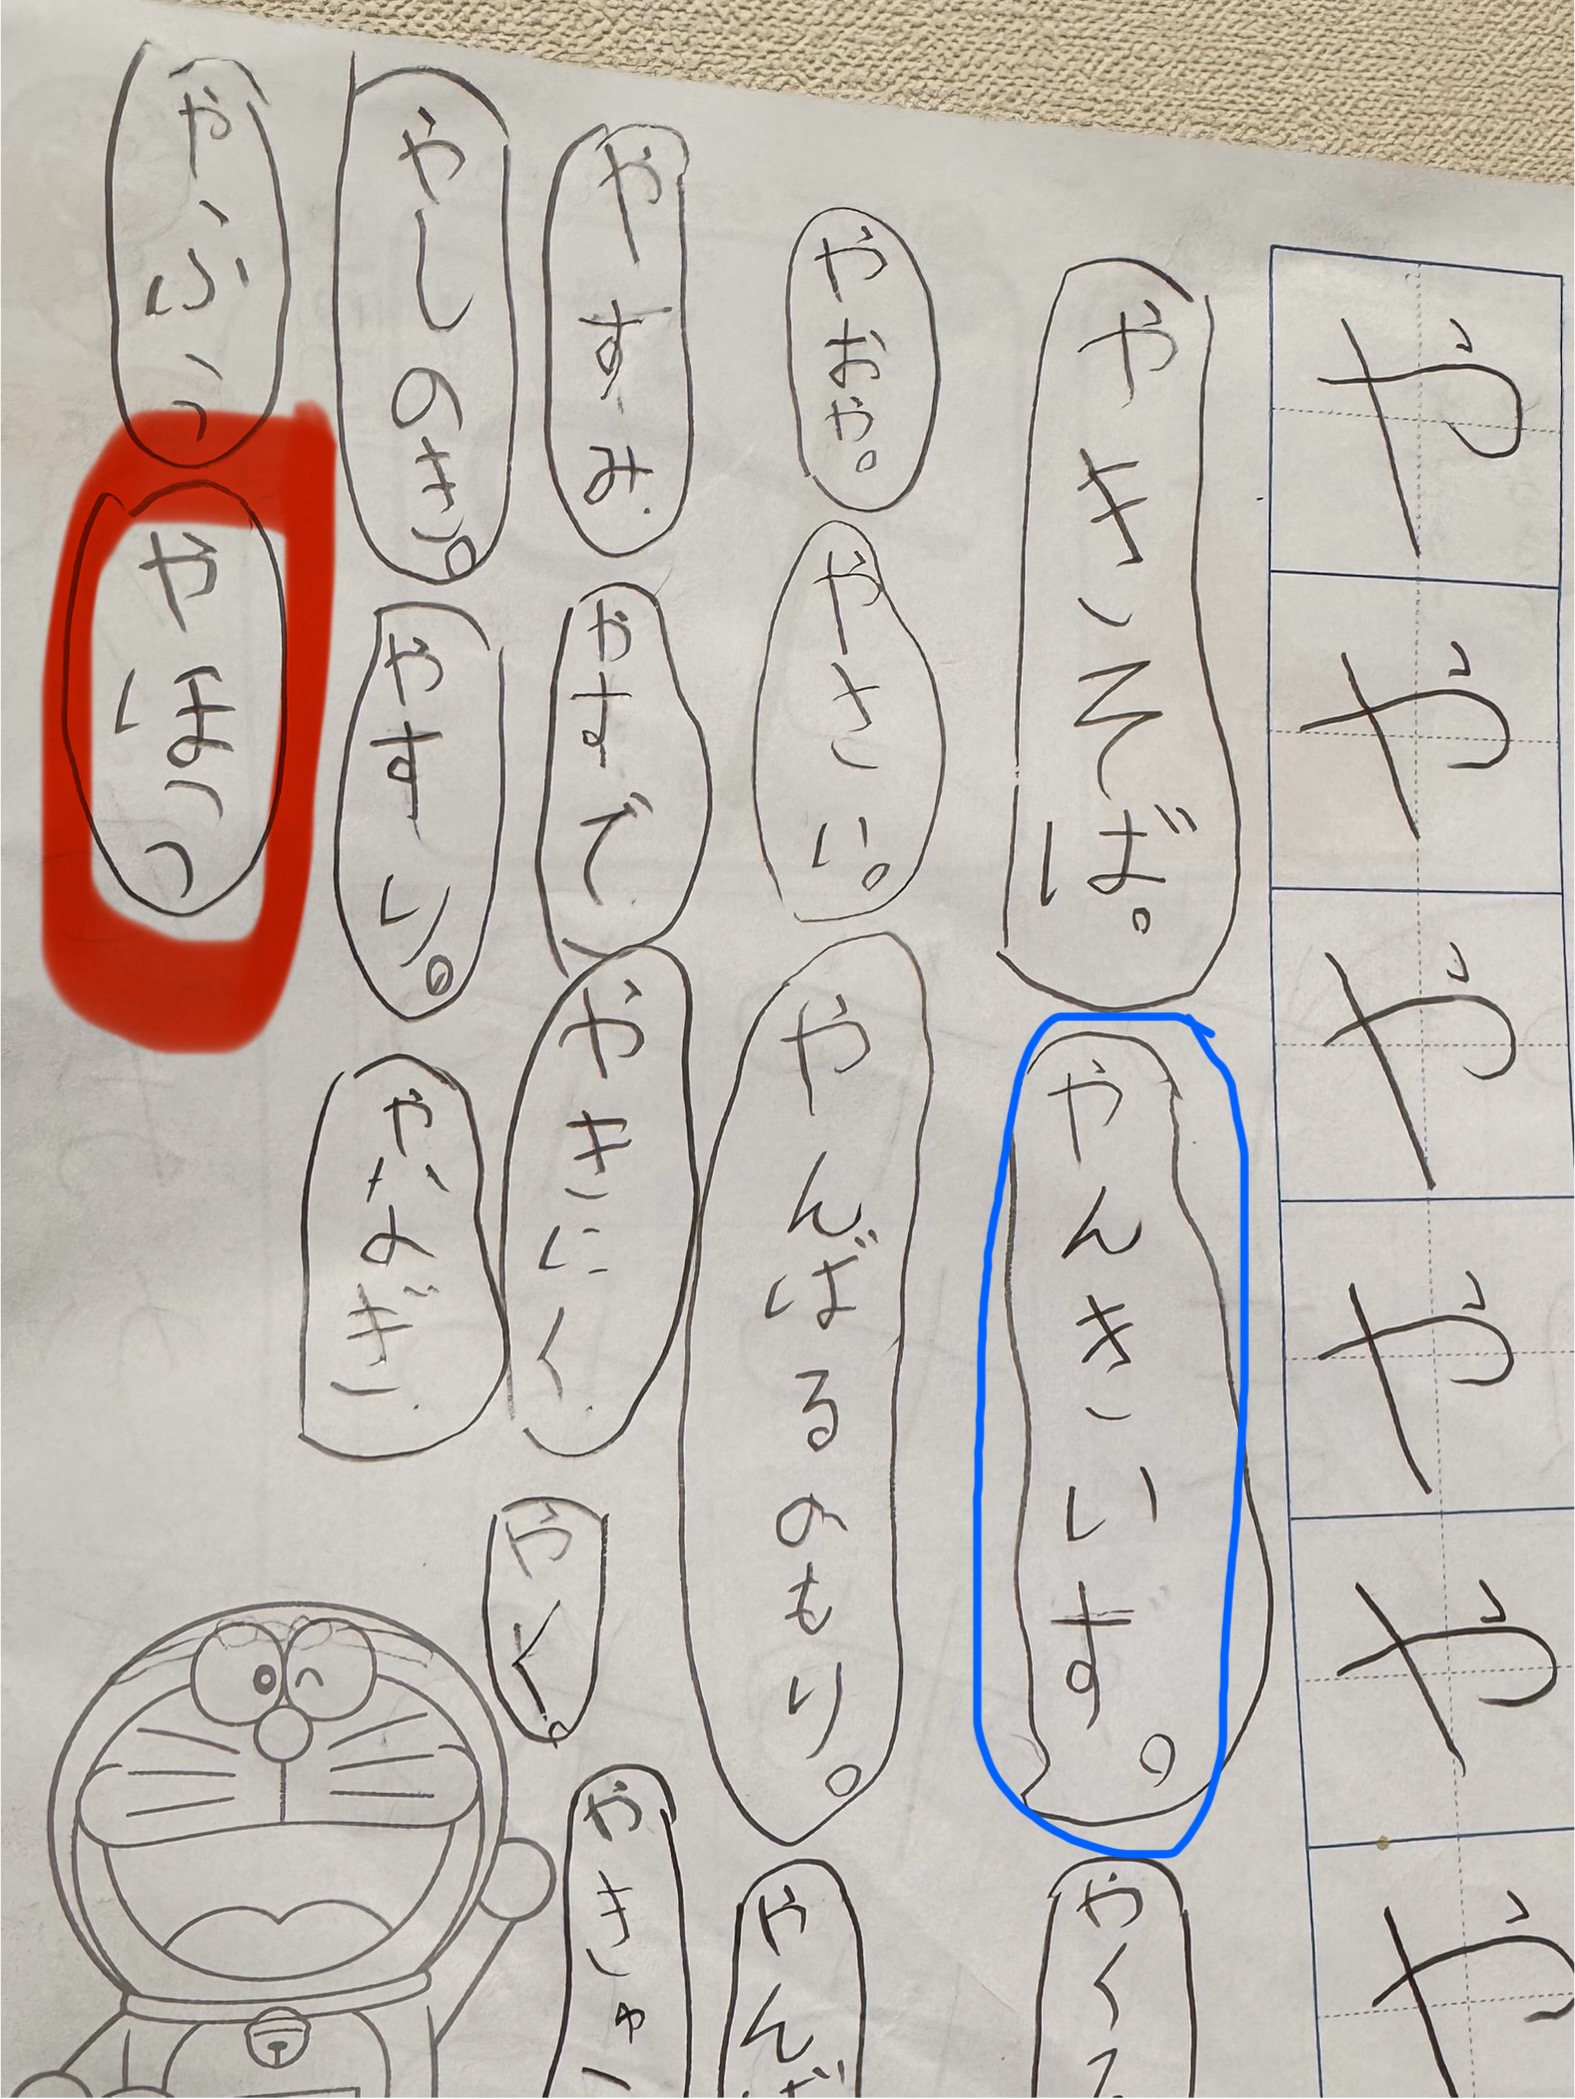 や
や
や
や
や
や
やきそば。
やんきいす。
やくる
やおや。
やさい。
やんばるのもり。
やんば
やすみ.
やすで
やきにく.
やく。
やきゅう
やしのき。
やすり。
やなぎ.
やぶっ
やほっつ